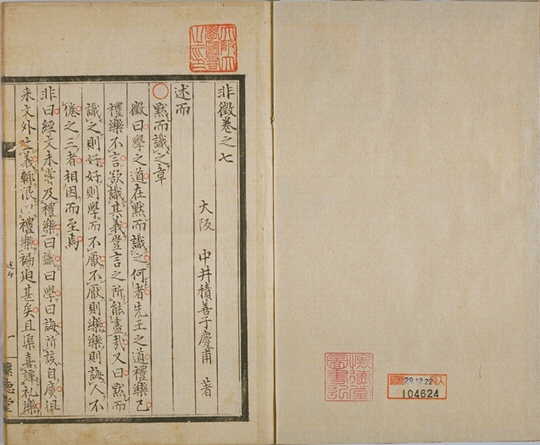 非徴巻之七
大阪 中井積善子慶甫 著
述而
○黙而識之章
徴曰學之道在黙而識之何者先王之道禮樂已
禮樂不言欲識其義豈言之所能盡哉又曰黙而
識之則好好則學而不厭不厭則樂樂則誨人不
倦之三者相因而至焉
非曰經文未嘗及禮樂曰識曰學曰誨所該自廣徂
來文外之義輙 禮樂褊迫甚矣且渠喜譚礼樂
一
懷德堂
29.12.22
104624